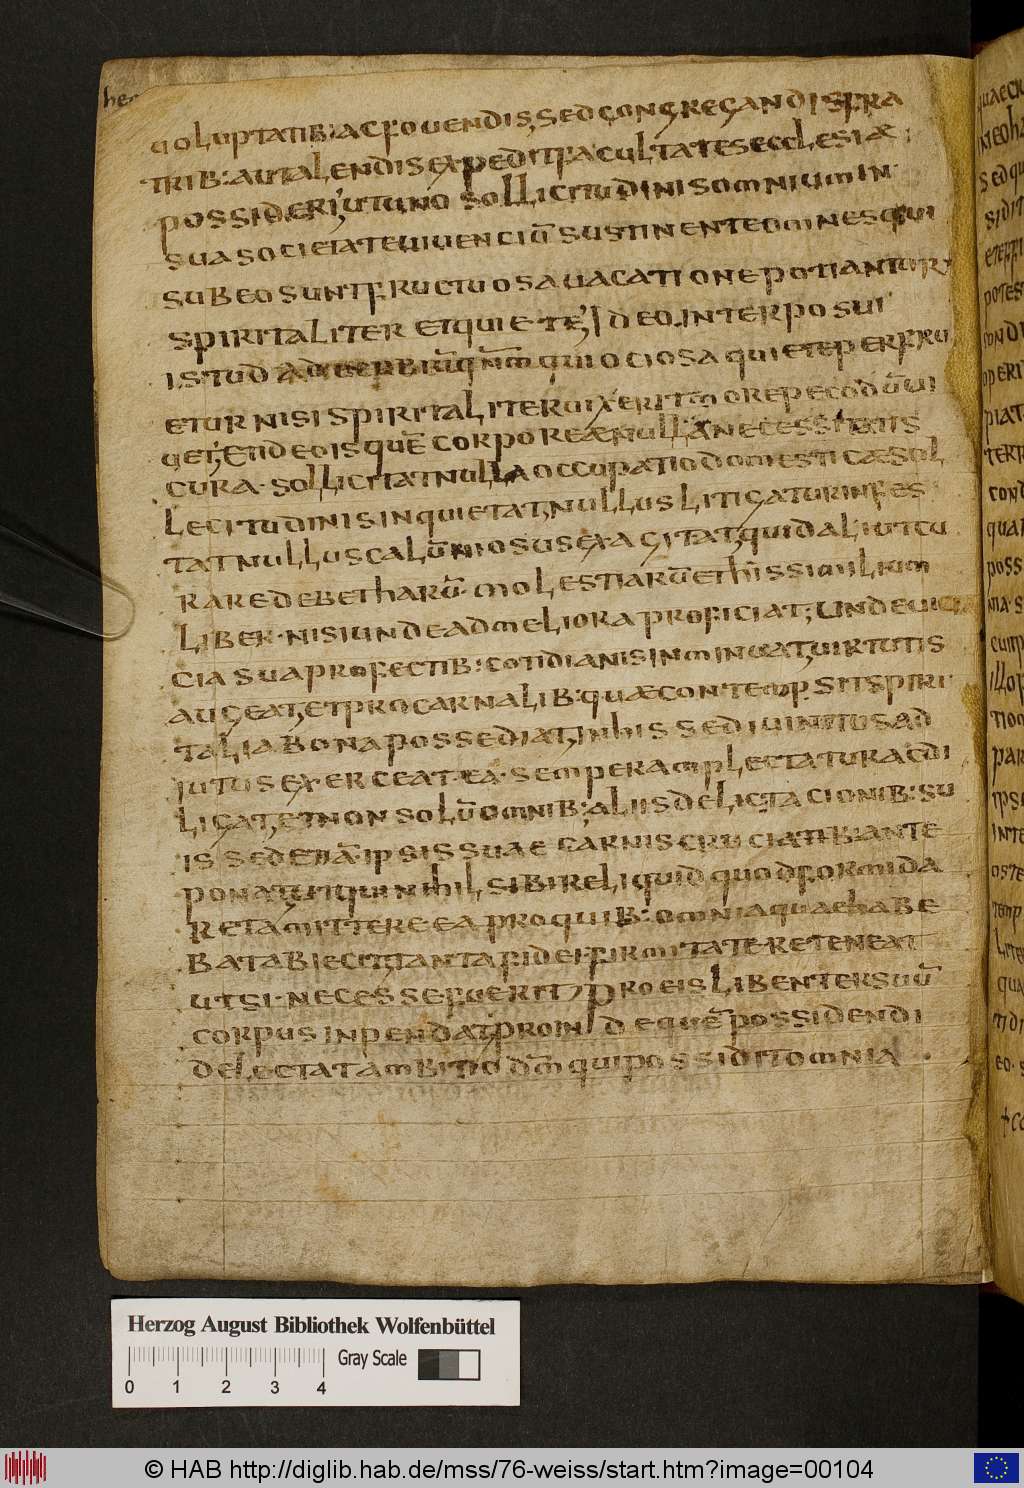 he
uoluptatib: ac fouendis, sed congregandis fra
trib: aut alendis expedit facultates ecclesiae
possideri, ut uno sollicitudini somnium in
sua societate uiuenciū sustinente omnes qui
sub eo sunt fructuosa uacatione potiantur
spiritaliter et quiete, Ideo interposui
istud aduerbiū qnm qui ociosa quiete perfru
etur nisi spiritaliter uixerit more pecodū ui
get, et ideo isque corporeae nulla necessitatis
cura sollicitat nulla occupatio domesticae sol
lecitudinis inquietat, nullus litigatur infes
tat nullus calūniosus exagitat, quid aliut cu
rare debet harū molestiarū et his similium
liber nisi unde ad meliora proficiat; Unde uic
cia sua profectib: cotidianis inminuat, uirtutis
augeat, et pro carnalib: quae contempsit spiri
talia bona possediat, In his se diuinitus ad
iutus exerceat ea semper amplectatur ac di
ligat, et non solū omnib: aliis delictacionib: su
is sed etiā ipsis suae carnis cruciatib: ante
ponat, ut qui nihil sibi reliquid quod formida
ret amittere ea pro quib: omnia quae habe
bat abiecit tanta fidei firmitate reteneat
ut si necesse fuerit pro eis libenter suū
corpus inpendat, proinde quē possidendi
delectat ambitio dm qui possidit omnia
Herzog August Bibliothek Wolfenbüttel
Gray Scale
0 1 2 3 4
© HAB http://diglib.hab.de/mss/76-weiss/start.htm?image=00104